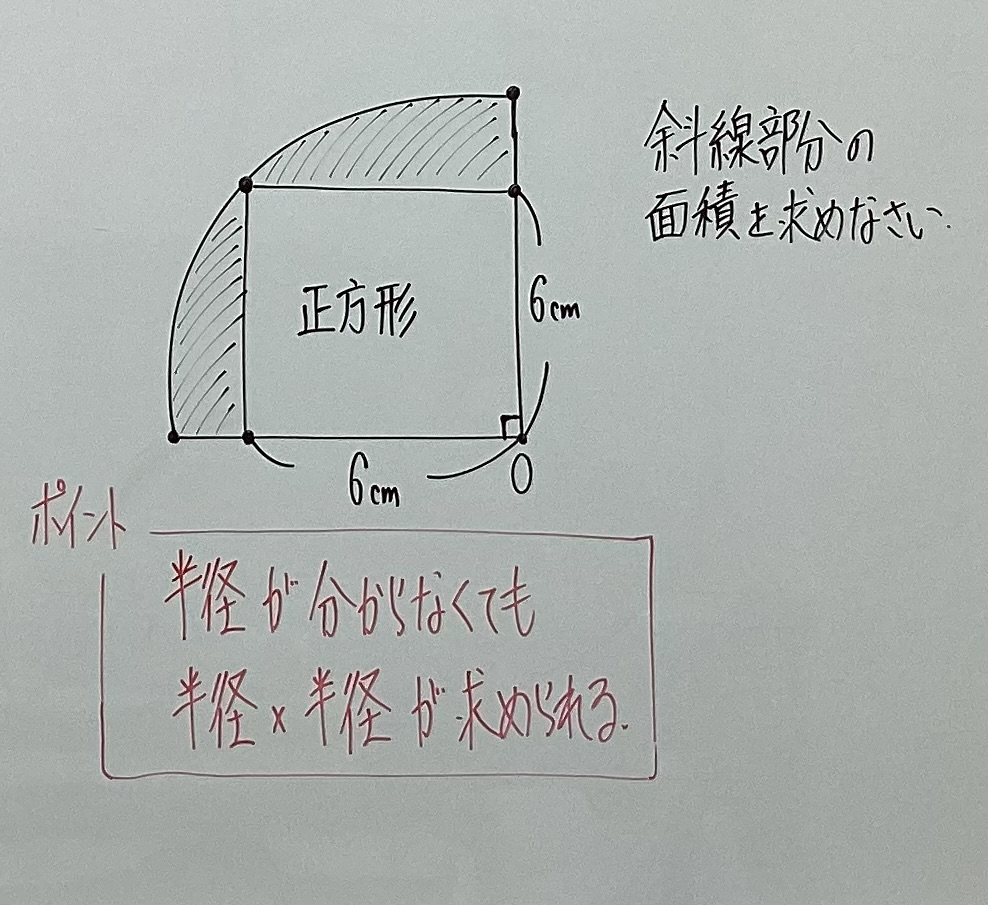 斜線部分の
面積を求めなさい.
正方形
6cm
6cm
O
ポイント
半径が分からなくても
半径×半径が求められる.